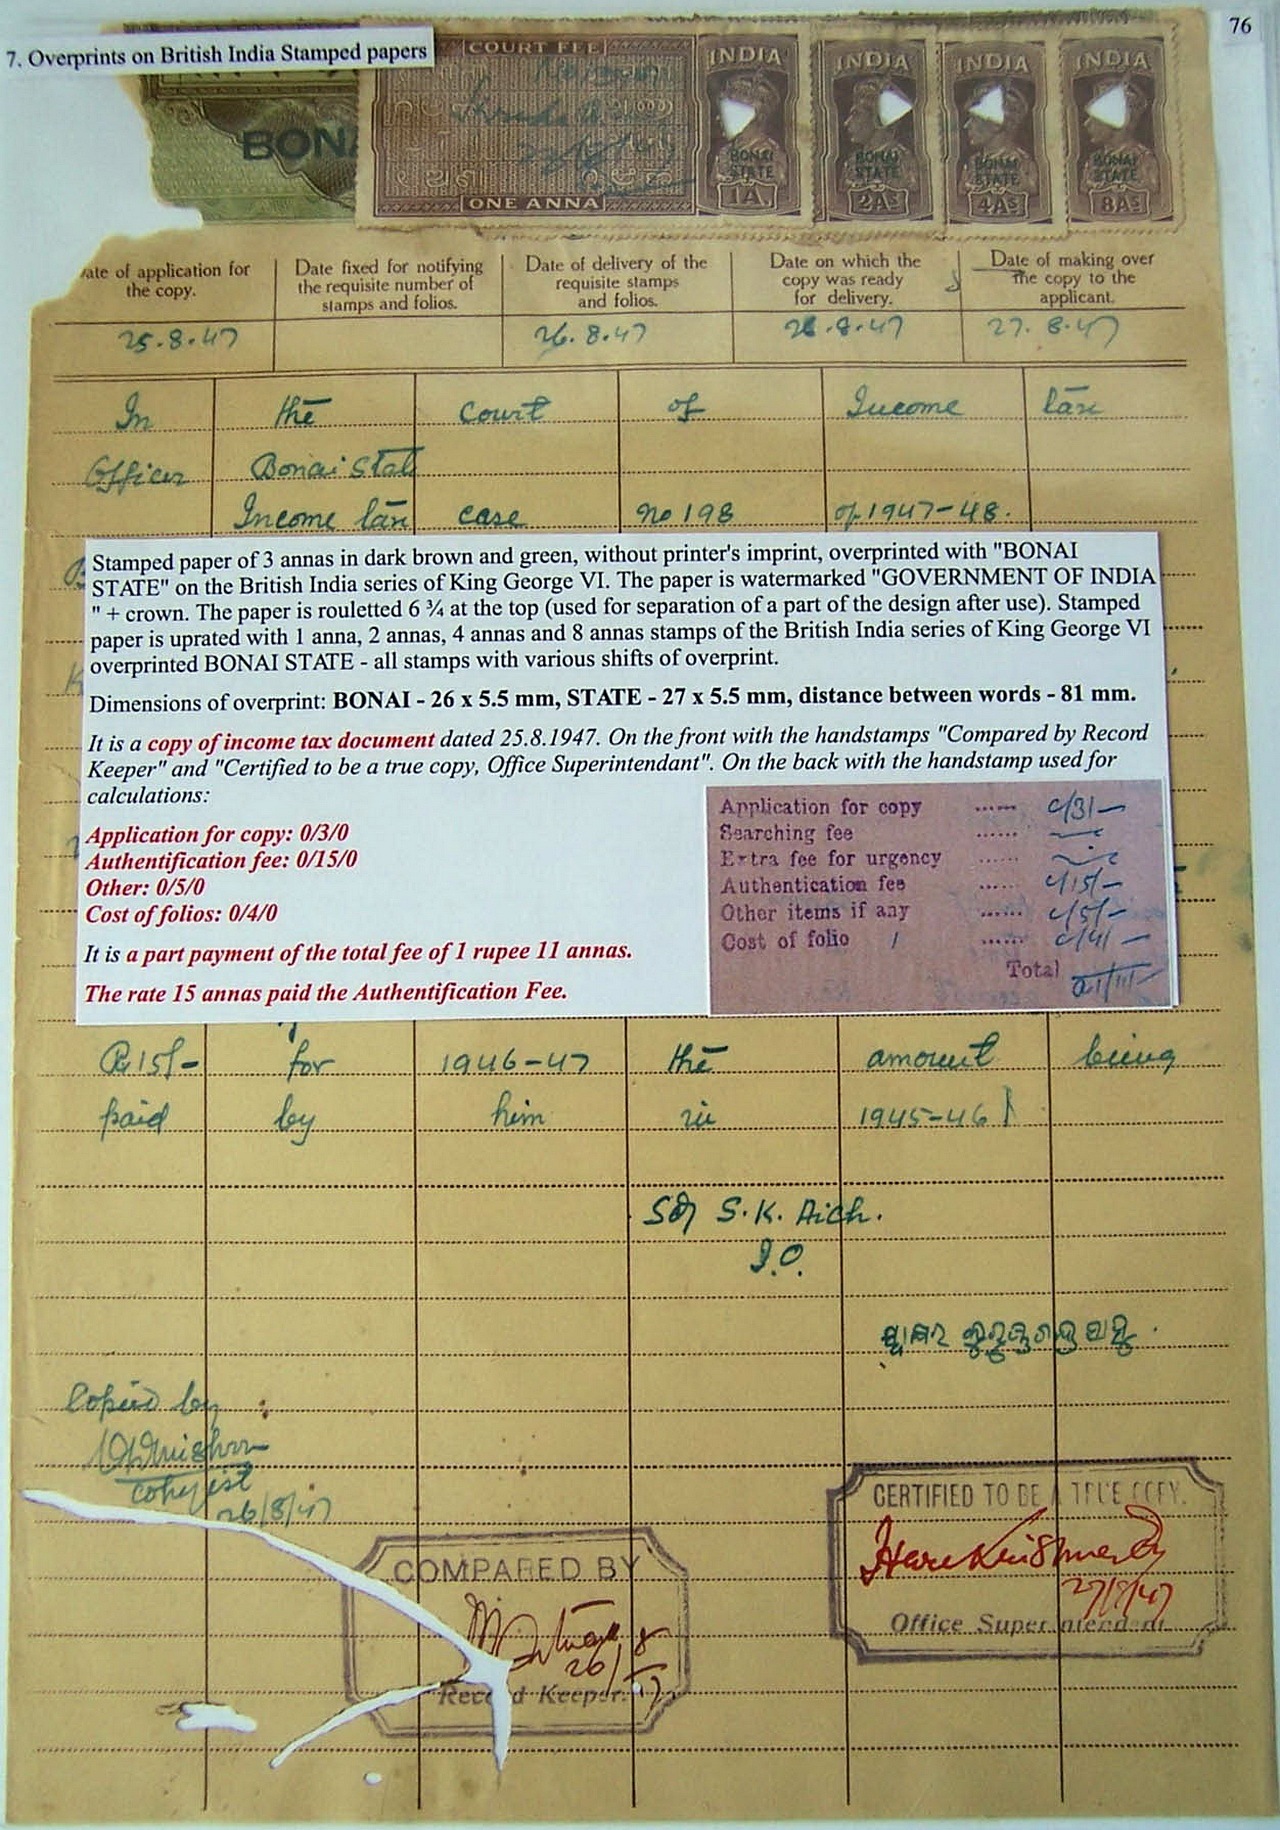 76
7. Overprints on British India Stamped papers
BONA
COURT FEE
ONE ANNA
INDIA
BONAI
STATE
1A
INDIA
BONAI
STATE
2AS
INDIA
BONAI
STATE
4AS
INDIA
BONAI
STATE
8AS
ate of application for
the copy.
Date fixed for notifying
the requisite number of
stamps and folios.
Date of delivery of the
requisite stamps
and folios.
Date on which the
copy was ready
for delivery.
Date of making over
the copy to the
applicant.
25.8.47
26.8.47
26.8.47
27.8.47
In the Court of Income tax
Officer Bonai State
Income tax case no 198 of 1947-48.
Stamped paper of 3 annas in dark brown and green, without printer's imprint, overprinted with "BONAI
STATE" on the British India series of King George VI. The paper is watermarked "GOVERNMENT OF INDIA
" + crown. The paper is rouletted 6 ¾ at the top (used for separation of a part of the design after use). Stamped
paper is uprated with 1 anna, 2 annas, 4 annas and 8 annas stamps of the British India series of King George VI
overprinted BONAI STATE - all stamps with various shifts of overprint.
Dimensions of overprint: BONAI - 26 x 5.5 mm, STATE - 27 x 5.5 mm, distance between words - 81 mm.
It is a copy of income tax document dated 25.8.1947. On the front with the handstamps "Compared by Record
Keeper" and "Certified to be a true copy, Office Superintendant". On the back with the handstamp used for
calculations:
Application for copy: 0/3/0
Authentification fee: 0/15/0
Other: 0/5/0
Cost of folios: 0/4/0
It is a part payment of the total fee of 1 rupee 11 annas.
The rate 15 annas paid the Authentification Fee.
Application for copy ...... c/3/-
Searching fee ......
Extra fee for urgency ......
Authentication fee ...... c/15/-
Other items if any ...... c/5/-
Cost of folio 1 ...... c/4/-
Total
Rs 15/- for 1946-47 the amount being
paid by him in 1945-46
Sd/ S.K. Aich.
I.O.
Copied by
copyist
26/8/47
COMPARED BY
26/8
Record Keeper.
CERTIFIED TO BE A TRUE COPY.
27/8/47
Office Superintendent